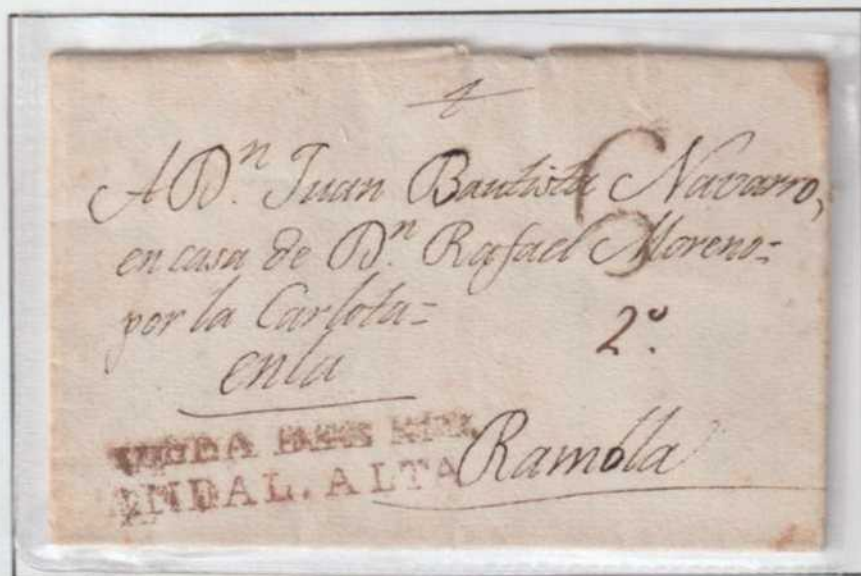 A Dⁿ. Juan Bautista Navarro,
en casa de Dⁿ. Rafael Moreno=
por la Carlota=
2º.
en la
Rambla
ANDAL. ALTA